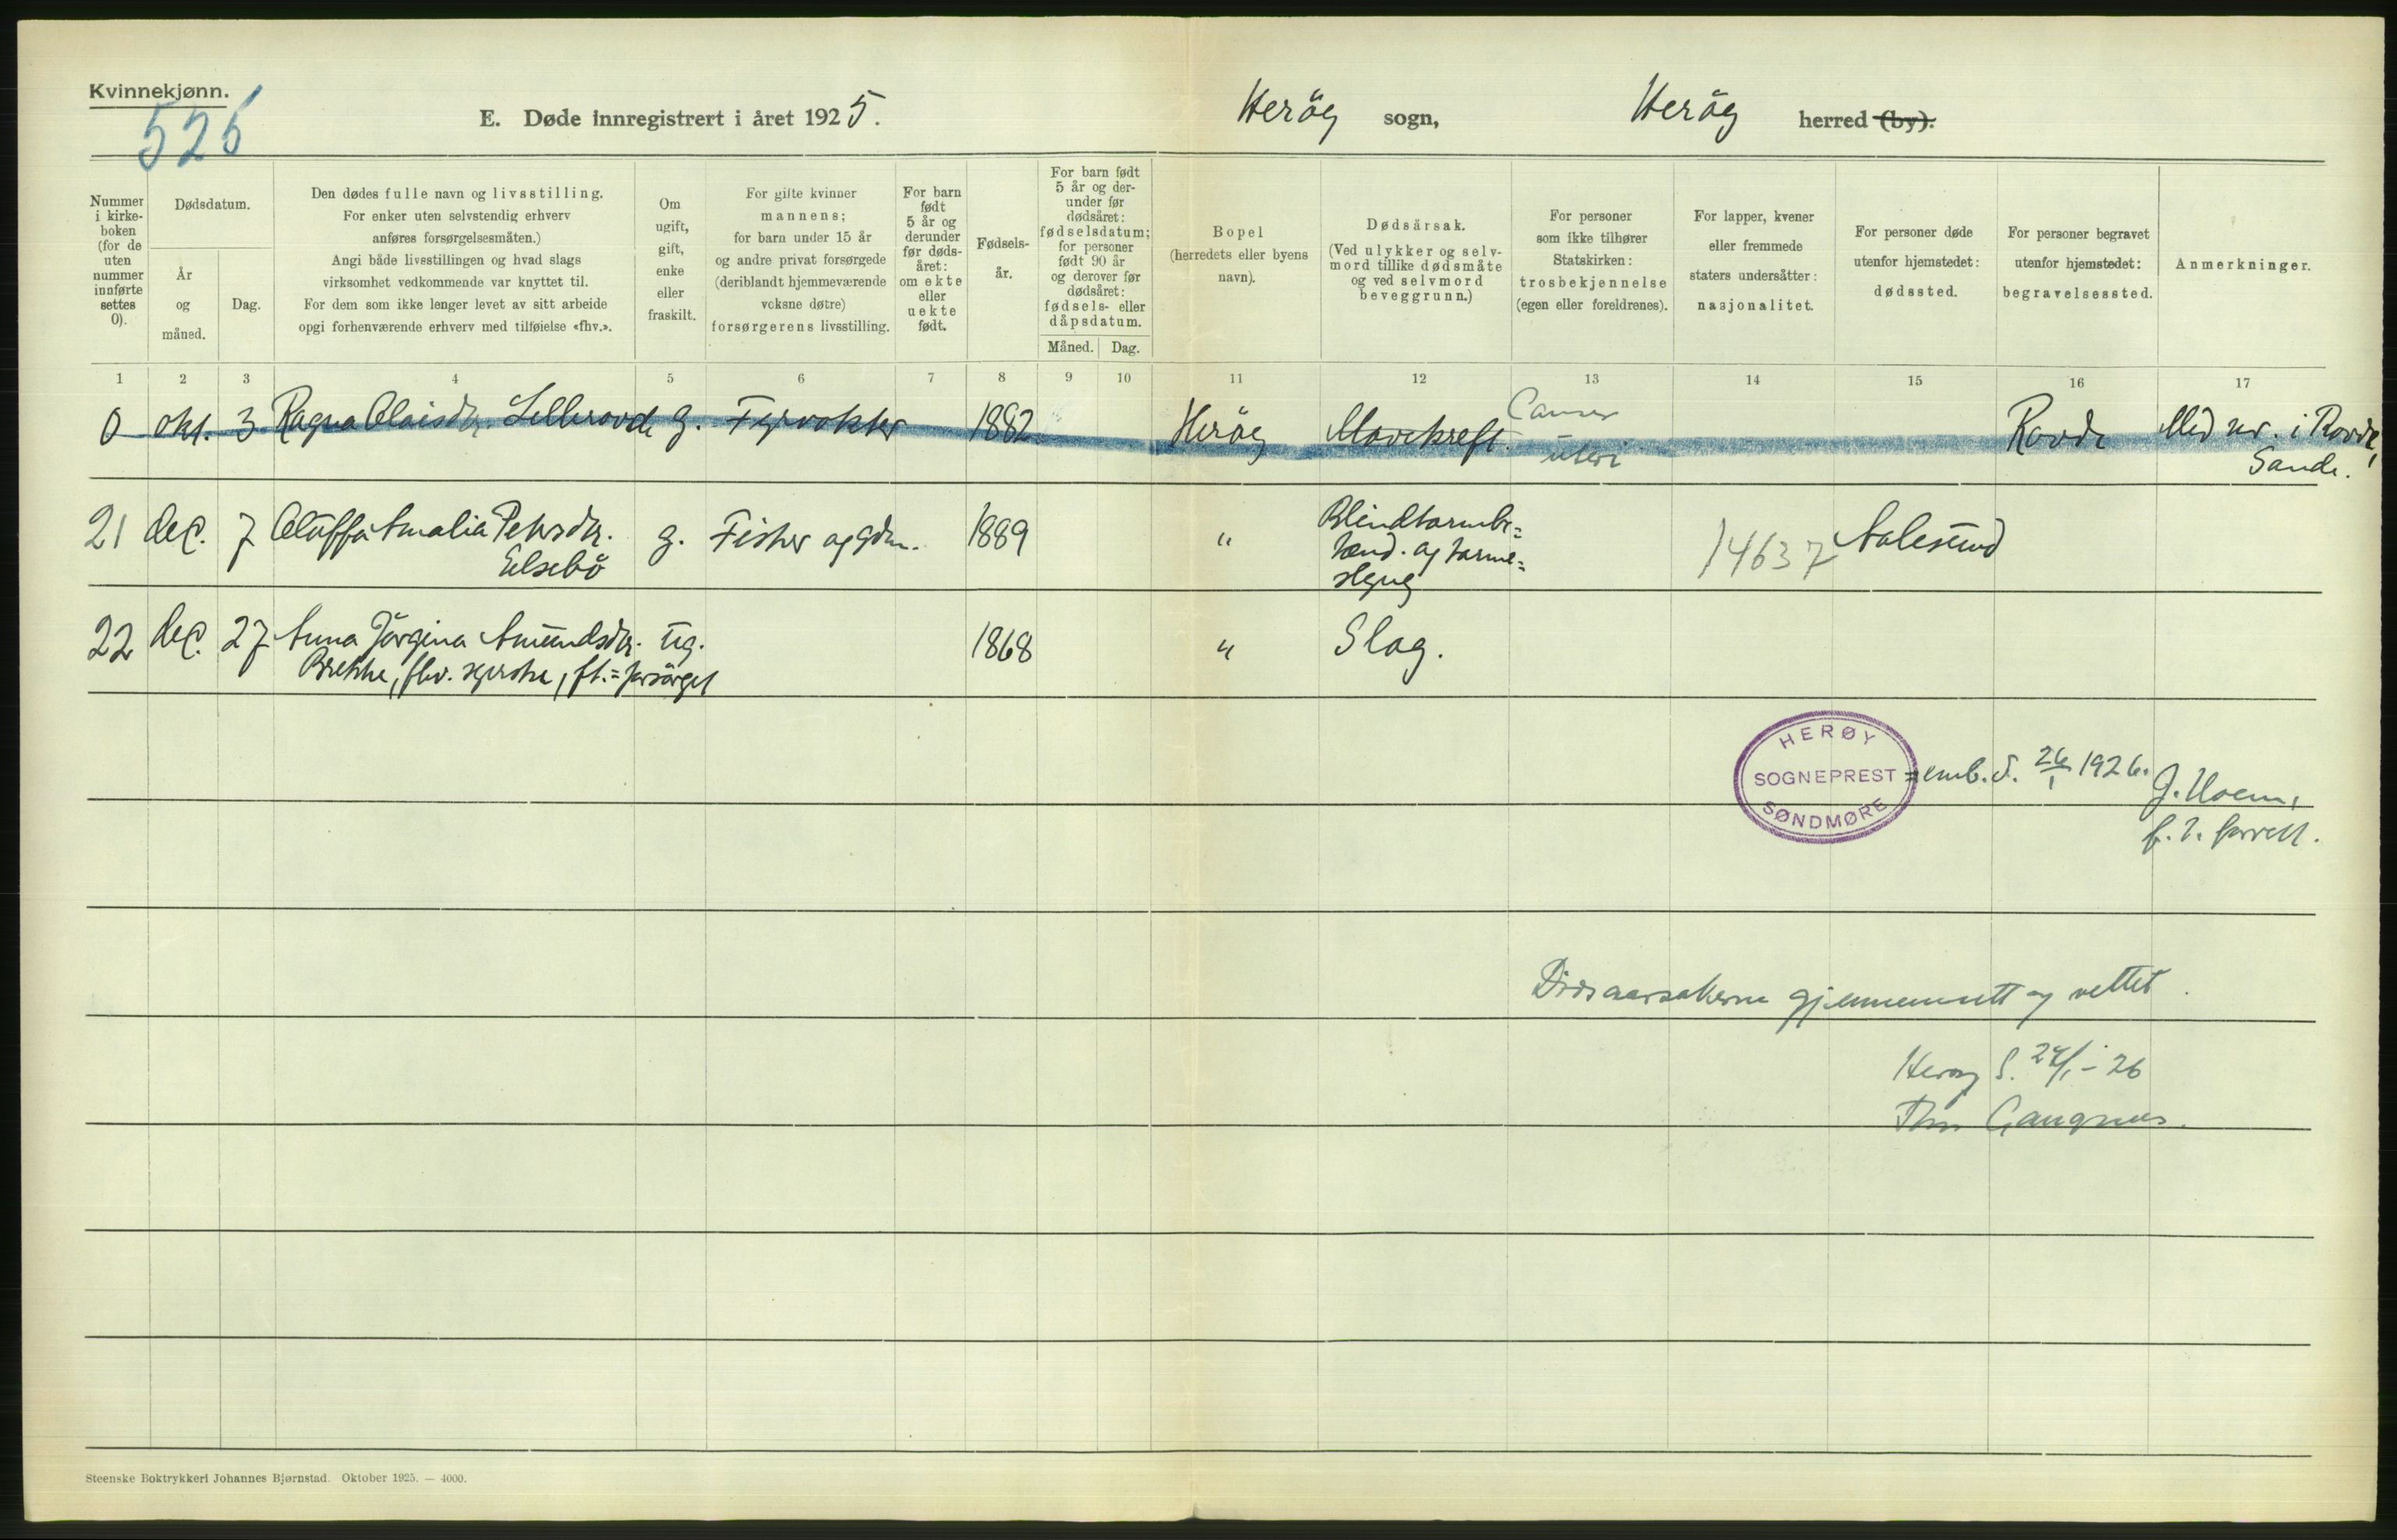 Kvinnekjønn.
526
E. Døde innregistrert i året 1925.
Herøy sogn, Herøy herred (by).
Nummer i kirkeboken (for de uten nummer innførte settes 0).
Dødsdatum.
År og måned.
Dag.
Den dødes fulle navn og livsstilling.
For enker uten selvstendig erhverv
anføres forsørgelsesmåten.)
Angi både livsstillingen og hvad slags
virksomhet vedkommende var knyttet til.
For dem som ikke lenger levet av sitt arbeide
opgi forhenværende erhverv med tilføielse «fhv.».
Om
ugift,
gift,
enke
eller
fraskilt.
For gifte kvinner
mannens;
for barn under 15 år
og andre privat forsørgede
(deriblandt hjemmeværende
voksne døtre)
forsørgerens livsstilling.
For barn
født
5 år og
derunder
før døds-
året:
om ekte
eller
uekte
født.
Fødsels-
år.
For barn født
5 år og der-
under før
dødsåret:
fødselsdatum;
for personer
født 90 år
og derover før
dødsåret:
fødsels- eller
dåpsdatum.
Måned. Dag.
Bopel
(herredets eller byens
navn).
Dødsårsak.
(Ved ulykker og selv-
mord tillike dødsmåte
og ved selvmord
beveggrunn.)
For personer
som ikke tilhører
Statskirken:
trosbekjennelse
(egen eller foreldrenes).
For lapper, kvener
eller fremmede
staters undersåtter:
nasjonalitet.
For personer døde
utenfor hjemstedet:
dødssted.
For personer begravet
utenfor hjemstedet:
begravelsessted.
Anmerkninger.
1 2 3 4 5 6 7 8 9 10 11 12 13 14 15 16 17
0 okt. 3 Ragna Olaisdtr. Lillerovde g. Fyrvokter 1882 Herøy Mavekreft. Cancer uteri Rovde Med nr. i Rovde,
Sande.
21 dec. 7 Oluffa Amalia Petersdtr. g. Fisker og gdm. 1889 " Blindtarmbe= 14637 Aalesund
Elsebö
tænd. og tarme=
slyng
22 dec. 27 Anna Jörgina Amundsdtr. ug. 1868 " Slag.
Brekke, fhv. syerske, ft.=forsörget
HERØY
SOGNEPREST
SØNDMØRE
=emb. d. 26/1 1926.
J. Hoem,
Dødsaarsakerne gjennemsett og rettet.
Herøy S. 29/1 - 26
Gangnæs.
Steenske Boktrykkeri Johannes Bjørnstad. Oktober 1925. — 4000.